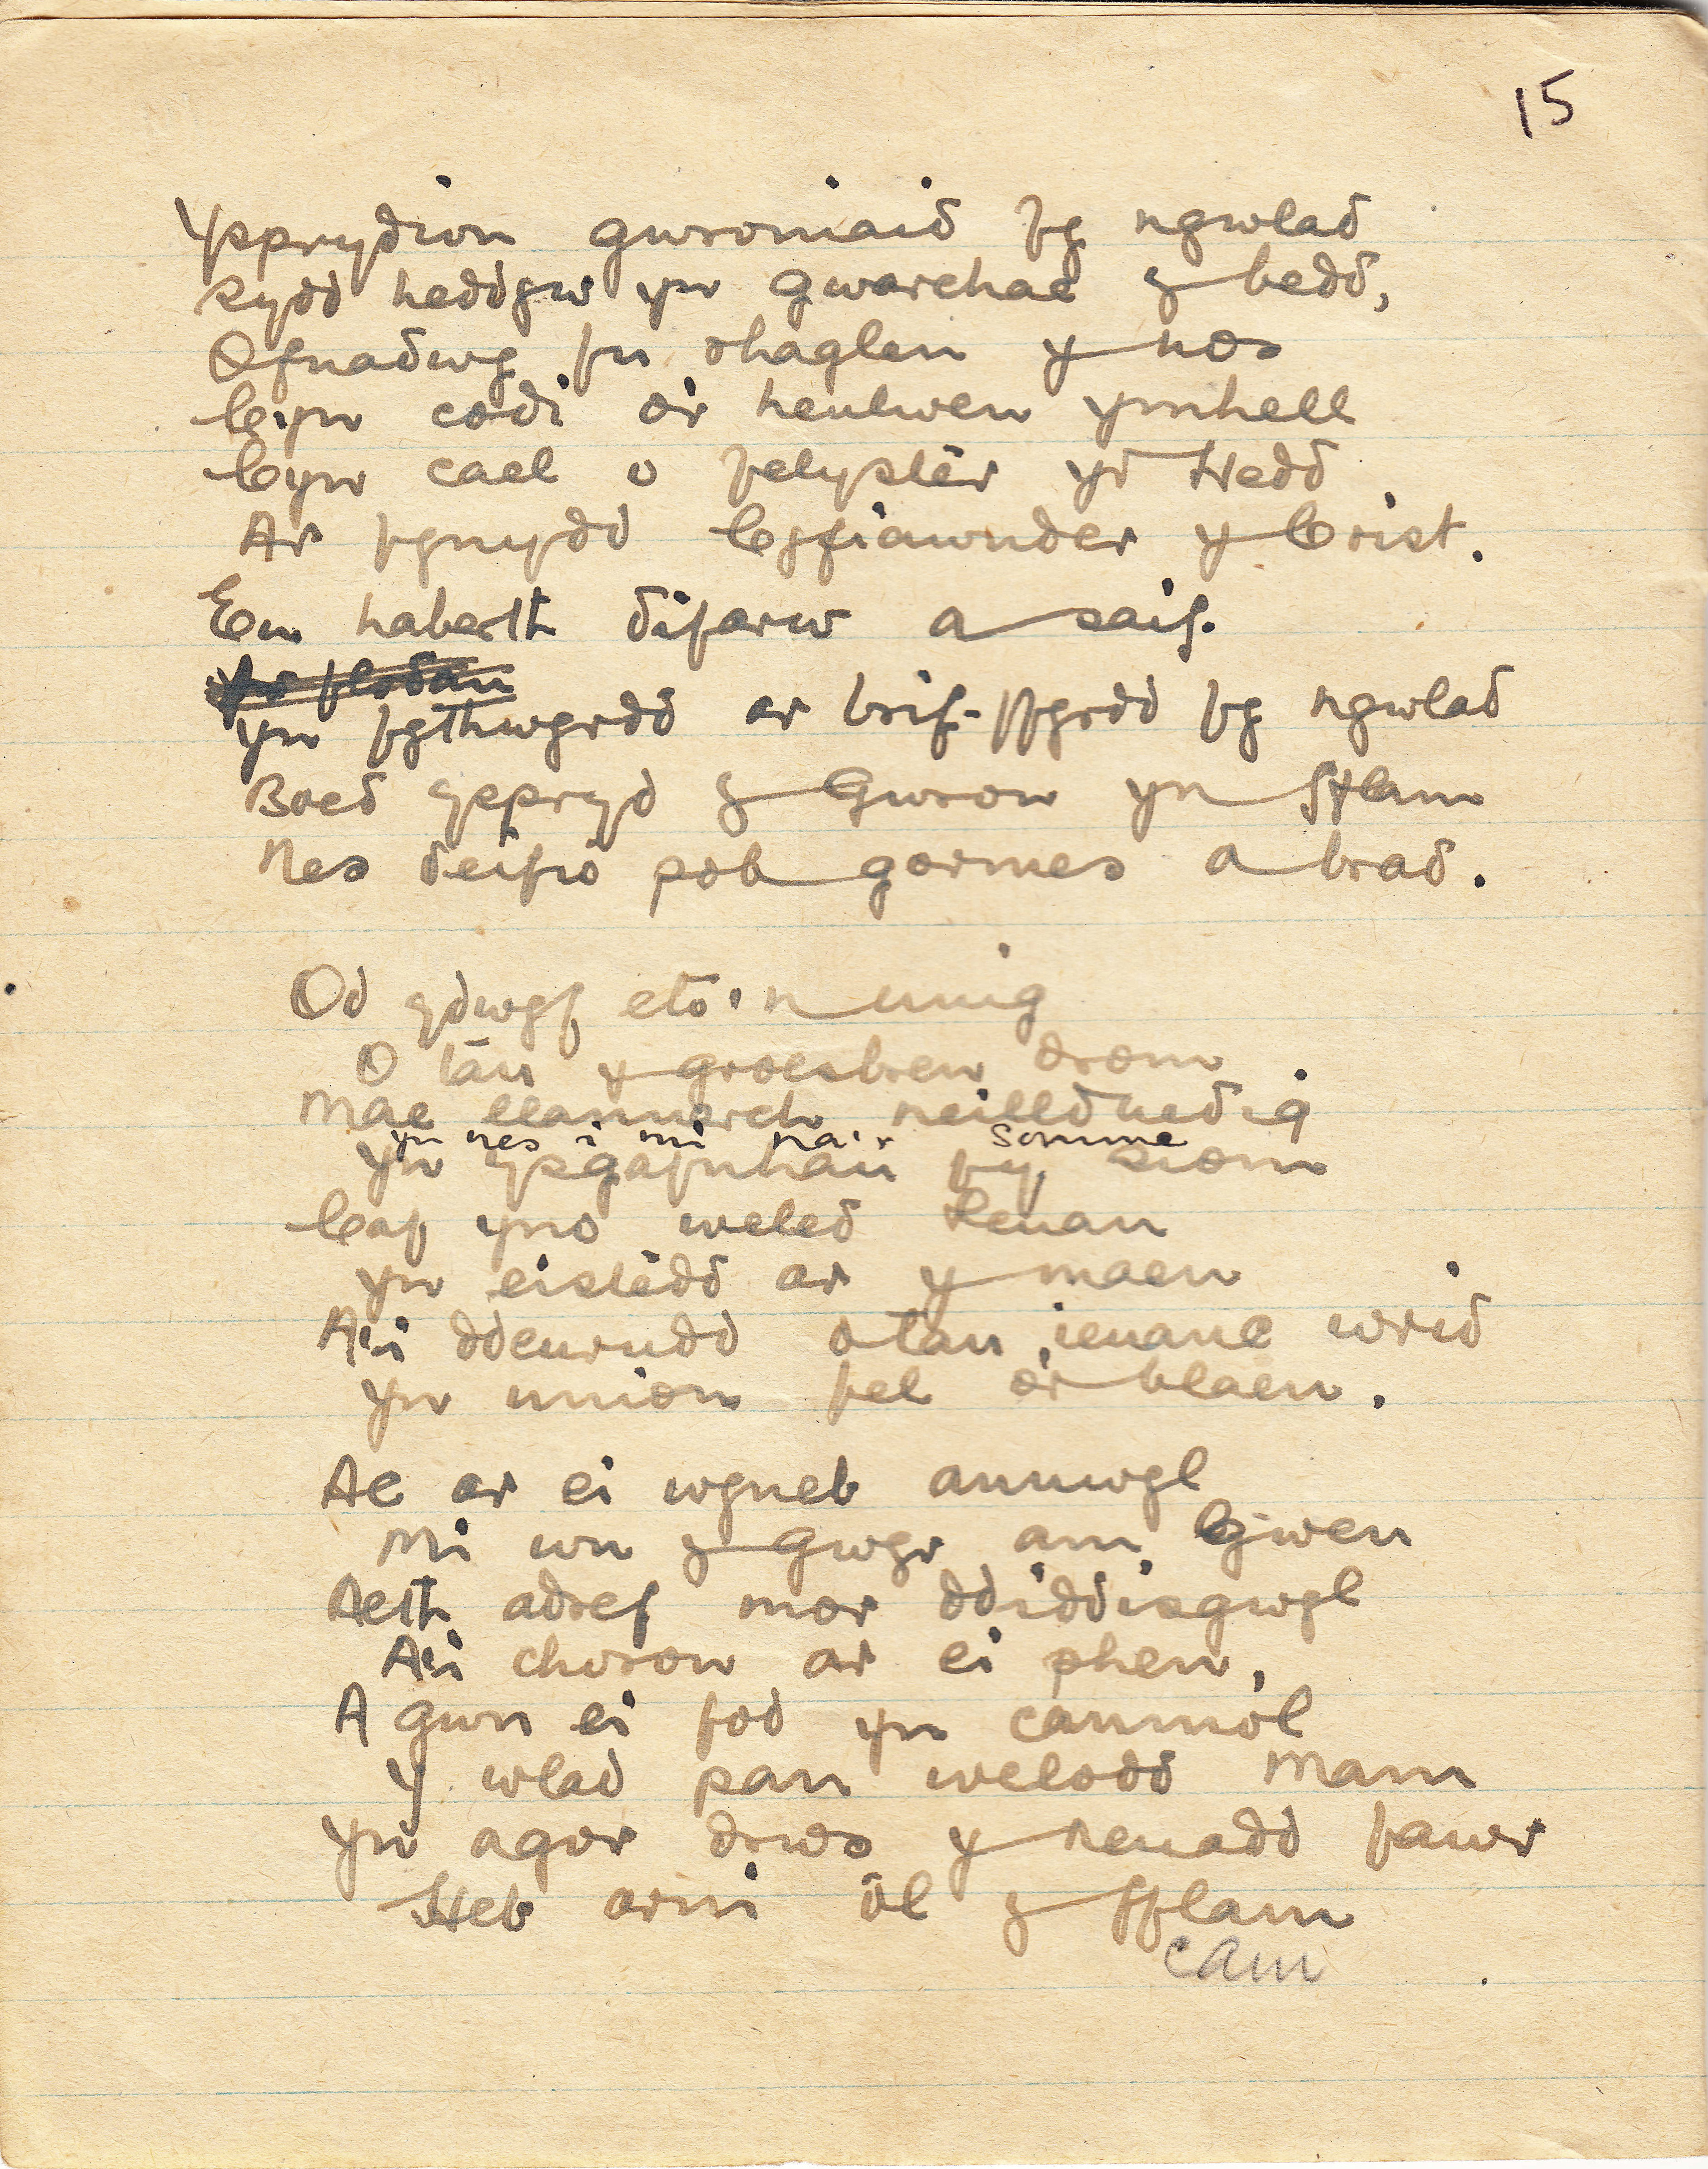 15
Ysprydion gwroniaid fy ngwlad
sydd heddyw yn gwarchae y bedd,
Ofnadwy fu rhaglen y nos
Cyn codi o'r heulwen ymhell
Cyn cael o felyster yr Hedd
Ar fynydd Cyfiawnder y Crist.
Eu haberth difarw a saif.
Ar flodau
Yn fythwyrdd ar brif-ffyrdd fy ngwlad
Boed yspryd y Gwron yn fflam
Nes deifio pob gormes a brad.
Od ydwyf eto'n unig
O tan y groesbren drom
Mae llannerch neillduedig
yn nes i mi na'r Somme
Yn ysgafnhau fy siom
Caf yno weled Ieuan
Yn eistedd ar y maen
A'i ddeurudd otan ieuanc wrid
Yn union fel o'r blaen.
Ac ar ei wyneb annwyl
Mi wn y gwyr am Gwen
Aeth adref mor ddiddisgwyl
A'i choron ar ei phen,
A gwn ei fod yn canmol
Y wlad pan welodd Mam
Yn agor drws y neuadd fawr
Heb arni ôl y fflam
cam